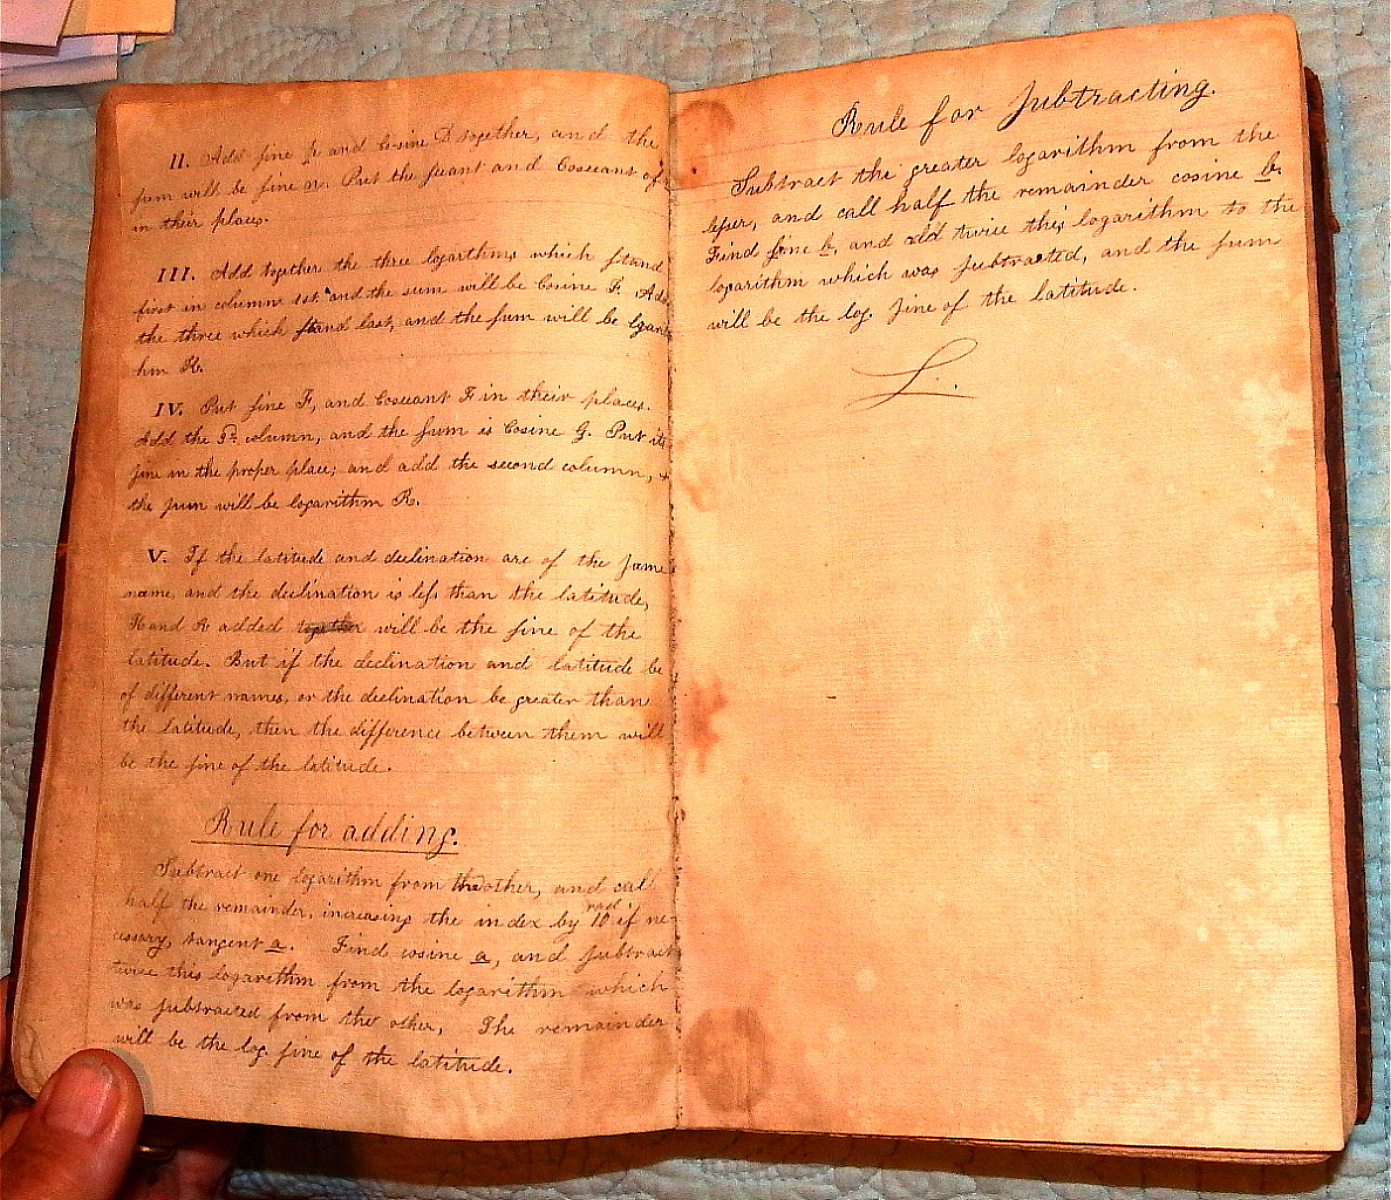 II. Add sine and Cosine D together, and the
sum will be sine a. Put the secant and Cosecant of
in their places.
III. Add together the three logarithms which stand
first in column 1st. and the sum will be Cosine F. Add
the three which stand last, and the sum will be logarit
hm H.
IV. Put sine F, and Cosecant F in their places.
Add the 3d. column, and the sum is Cosine G. Put its
sine in the proper place; and add the second column, &
the sum will be logarithm R.
V. If the latitude and declination are of the same
name, and the declination is less than the latitude,
H and R added together will be the sine of the
latitude. But if the declination and latitude be
of different names, or the declination be greater than
the latitude, then the difference between them will
be the sine of the latitude.
Rule for adding.
Subtract one logarithm from the other, and call
half the remainder, increasing the index by 10 rad. if ne-
cessary, tangent a. Find cosine a, and subtract
twice this logarithm from the logarithm which
was subtracted from the other. The remainder
will be the log. sine of the latitude.
Rule for subtracting.
Subtract the greater logarithm from the
lesser, and call half the remainder cosine b.
Find sine b, and add twice this logarithm to the
logarithm which was subtracted, and the sum
will be the log. sine of the latitude.
L.